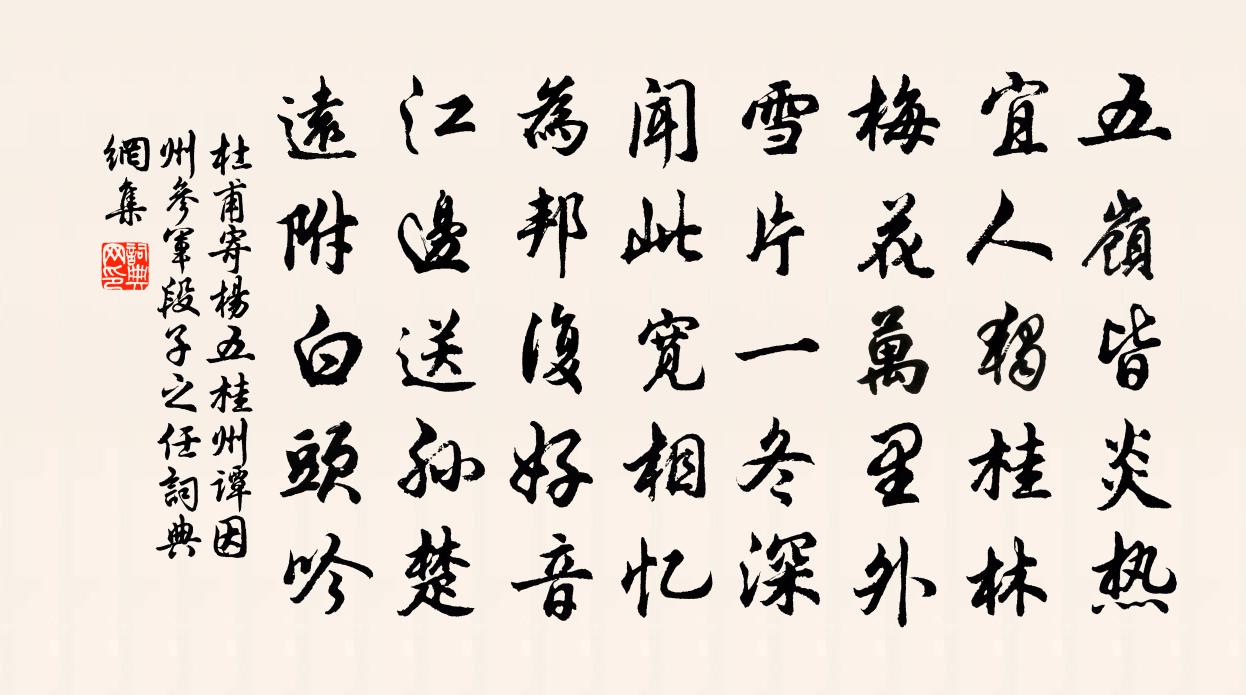 五嶺皆炎热
宜人獨桂林
梅花萬里外
雪片一冬深
聞此宽相忆
為邦復好音
江邊送孙楚
遠附白頭吟
杜甫寄楊五桂州譚因
州參軍段子之任詞典
網集
詞典網印